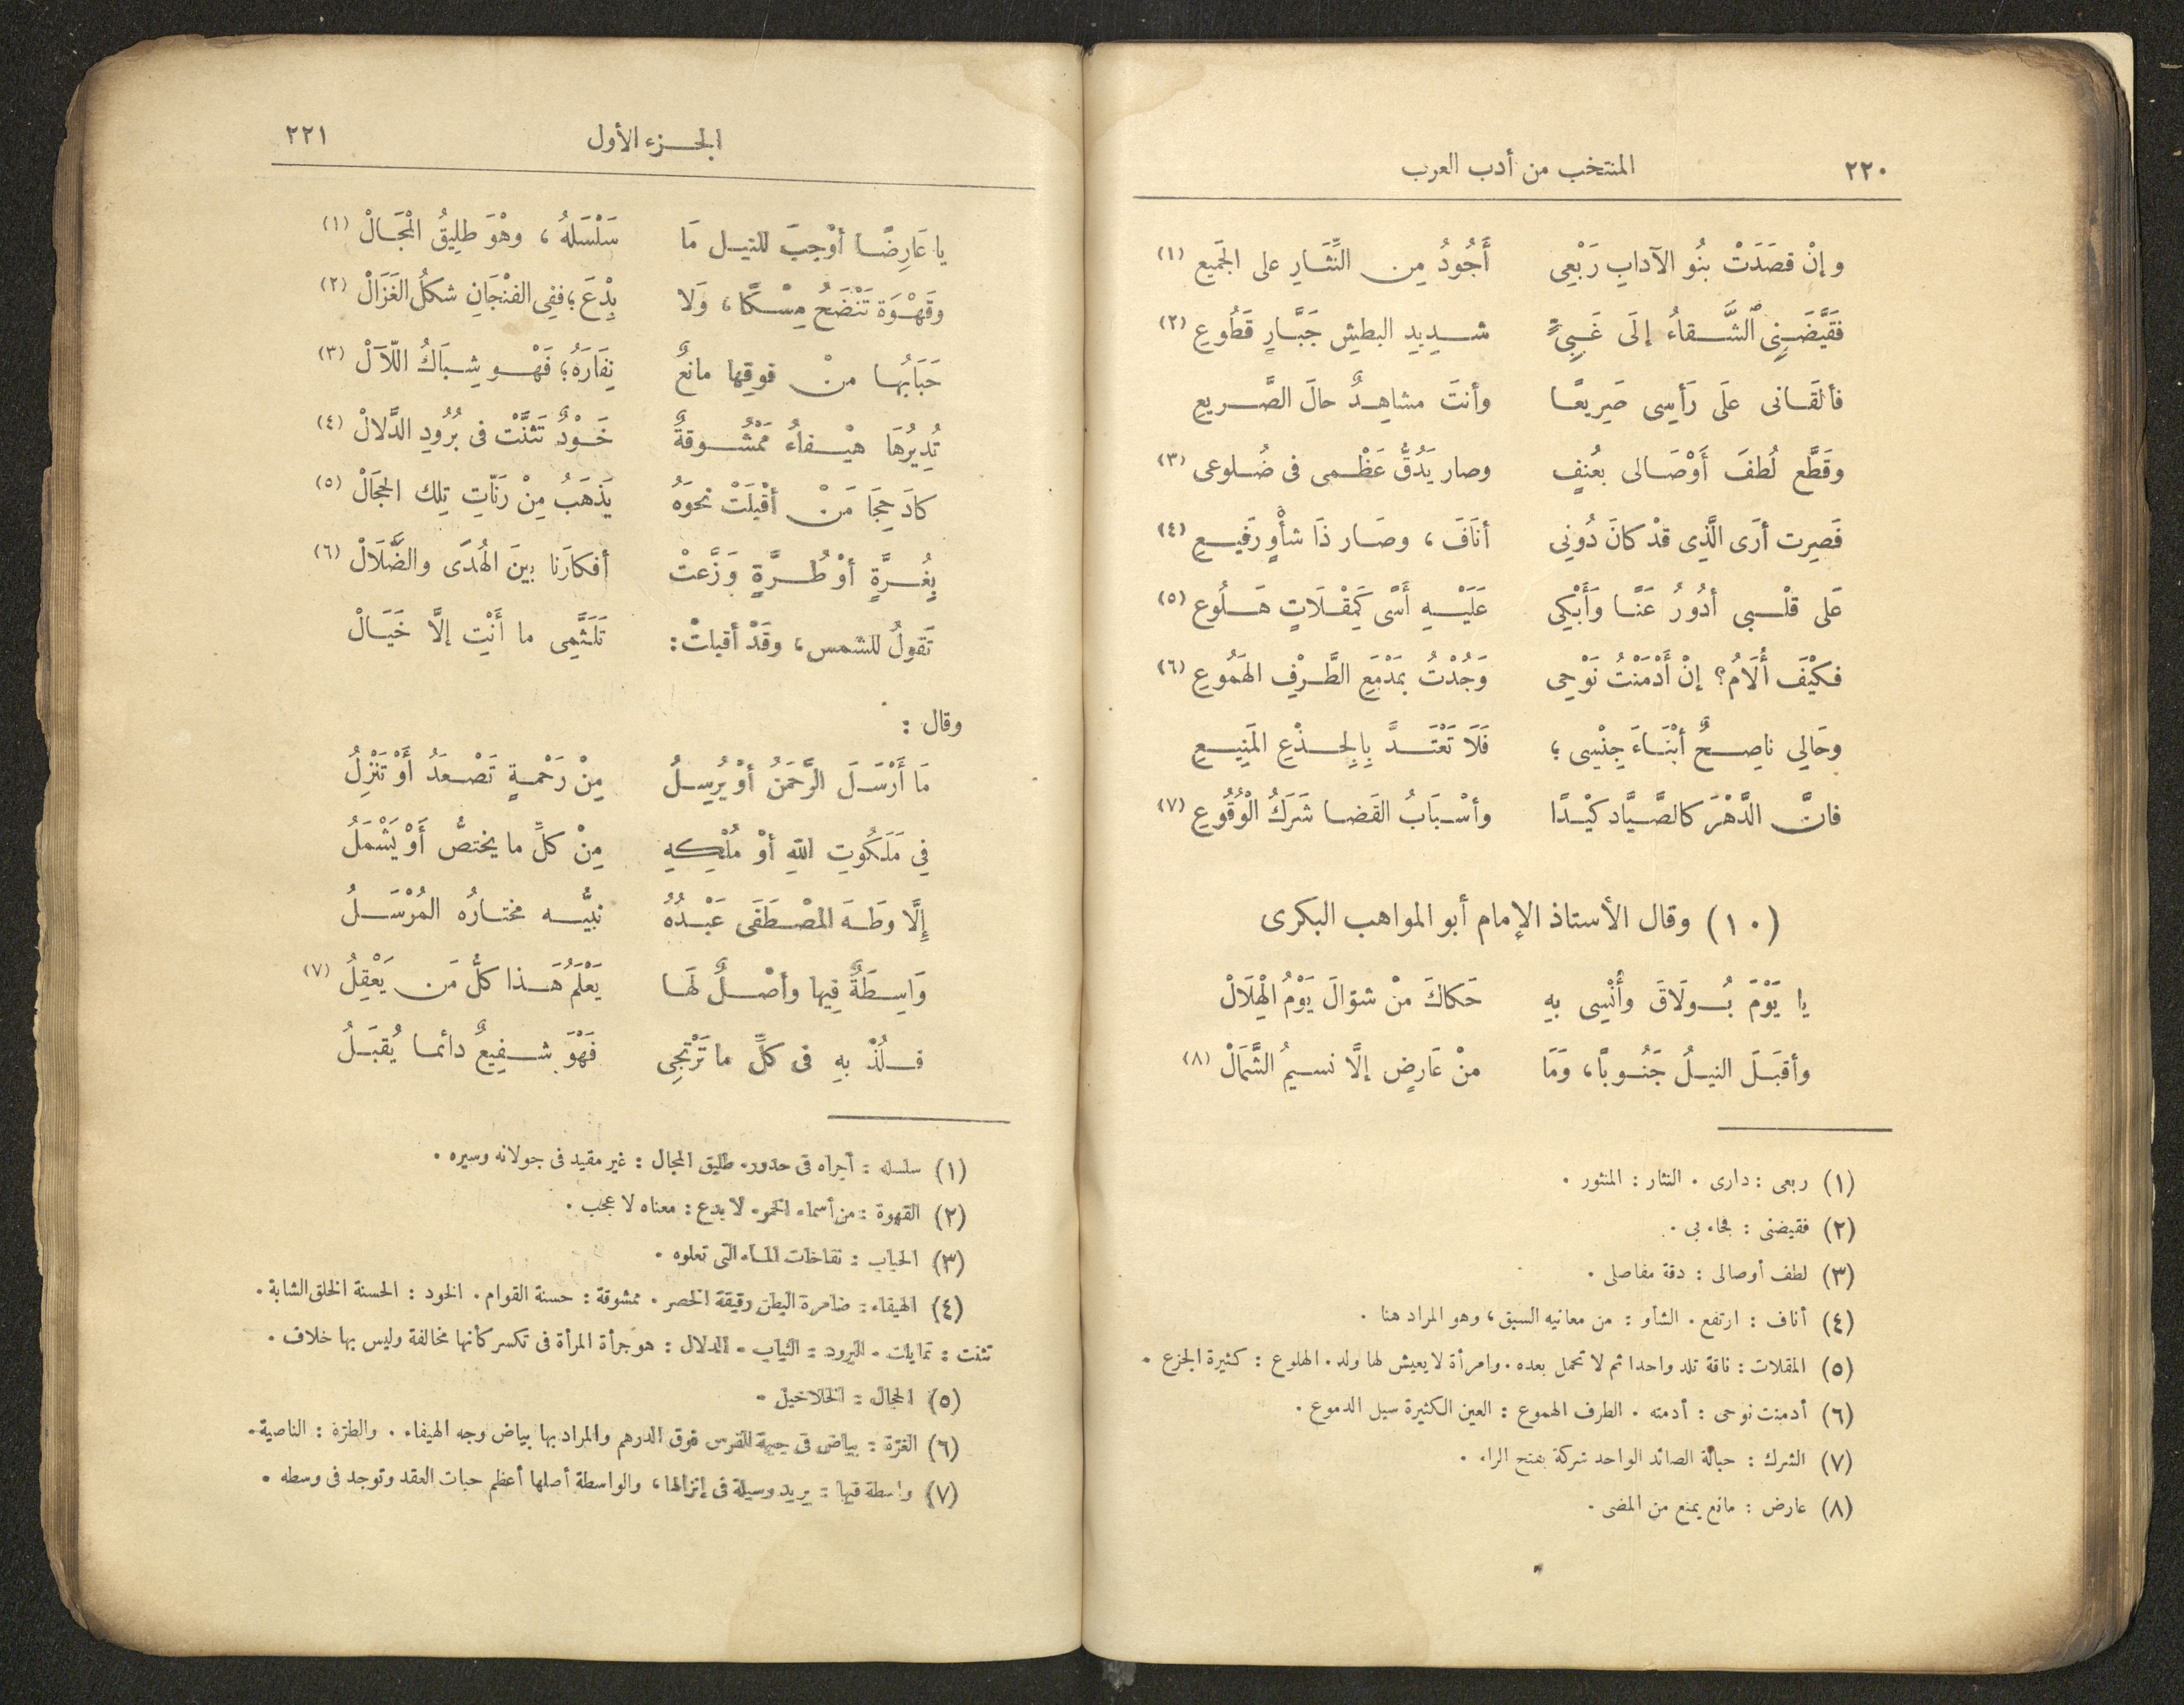 ٢٢٠ المنتخب من أدب العرب
وإنْ قصَدَتْ بنُو الآدابِ رَبْعِى أَجُودُ مِن النِّثَارِ على الجَمِيعِ (١)
فقَيَّضَنِى ٱلشَّقاءُ إلَى غَبِىٍّ شدِيدِ البطيشِ جَبَّارٍ قَطُوعِ (٢)
فألقَانى علَى رَأسِى صَرِيعًا وأنتَ مشاهِدٌ حالَ الصَّريعِ
وقَطَّع لُطفَ أَوْصَالى بعُنفٍ وصار يَدُقُّ عَظْمى فى ضُلوعى (٣)
فَصِرت أرَى الَّذِى قدْ كانَ دُونِى أنَافَ ، وصَار ذَا شأْوٍ رَفيعِ (٤)
عَلى قلْبى أدُورُ عَنًا وَأَبْكِى عَلَيْهِ أسًى كَمِقْلَاتٍ هَلُوعِ (٥)
فكيْفَ أُلَامُ؟ إنْ أَدْمَنْتُ نَوْحِى وَجُدْتُ بمَدْمَعِ الطَّرْفِ الهَمُوعِ (٦)
وحَالِي ناصِحٌ أبْنَاءَ جِنْسِى ؛ فَلَا تَعْتَدَّ بِالجِذْعِ المَنِيعِ
فانَّ الدَّهْرَ كالصَّيَّاد كيْدًا وأسْبَابُ القَضا شَرَكُ الْوُقُوعِ (٧)
(١٠) وقال الأستاذ الإمام أبو المواهب البكرى
يا يَوْمَ بُولَاقَ وأُنْسِى بِهِ حَكاكَ منْ شوّالَ يَوْمُ الْهِلَالْ
وأقبَلَ النيلُ جَنُوبًا ، وَمَا منْ عَارِضٍ إلَّا نسيمُ الشَّمَالْ (٨)
(١) ربعى : دارى . النثار : المنثور .
(٢) فقيضنى : فجاء بى .
(٣) لطف أوصالى : دقة مفاصلى .
(٤) أناف : ارتفع . الشأو : من معانيه السبق ، وهو المراد هنا .
(٥) المقلات : ناقة تلد واحدا ثم لا تحمل بعده . وامرأة لا يعيش لها ولد . الهلوع : كثيرة الجزع .
(٦) أدمنت نوحى : أدمته . الطرف الهموع : العين الكثيرة سيل الدموع .
(٧) الشرك : حبالة الصائد الواحد شركة بفتح الراء .
(٨) عارض : مانع يمنع من المضى .
الجزء الأول ٢٢١
يا عَارِضًا أوْجبَ للنيل مَا سَلْسَلهُ ، وهْوَ طلِيقُ الْمجَالْ (١)
وقَهْوَة تَنْضَحُ مِسْكًا ، وَلا بِدْعَ ؛ ففِى الفنْجَانِ شكلُ الغَزَالْ (٢)
حَبَابُها منْ فوقِها مانعٌ نِفَارَهُ ؛ فَهْو شِبَاكُ اللّآلْ (٣)
تُدِيرُهَا هيْفاءُ مَمْشُوقةٌ خَوْدٌ تَثنَّتْ فى بُرُودِ الدَّلالْ (٤)
كادَ حِجَا مَنْ أقْبَلَتْ نحوَهُ يَذهَبُ مِنْ رَنّاتِ تِلك الحِجَالْ (٥)
بِغُرَّةٍ أوْ طُرَّةٍ وَزَّعتْ أفكارَنا بينَ الهُدَى والضَّلَالْ (٦)
تَقولُ للشمس ، وقَدْ أقبلتْ : تَلَثَّمِى ما أَنْتِ إلَّا خَيَالْ
وقال :
مَا أَرْسَلَ الرَّحمَنُ أوْ يُرسِلُ مِنْ رَحْمةٍ تَصْعَدُ أَوْ تَنْزِلُ
فِى مَلَكُوتِ اللهِ أوْ مُلْكِهِ مِنْ كلِّ ما يختصُّ أَوْ يَشْمَلُ
إلَّا وطَهَ المصْطَفَى عَبْدُهُ نبيُّه مختارُه المُرْسَلُ
وَاسِطَةٌ فِيها وأصْلٌ لهَا يَعْلَمُ هَذا كلُّ مَن يَعْقِلُ (٧)
فلُذْ بهِ فى كلِّ ما تَرْتجِى فَهْوَ شفِيعٌ دائما يُقبَلُ
(١) سلسله : أجراه فى حدور . طليق المجال : غير مقيد فى جولانه وسيره .
(٢) القهوة : من أسماء الخمر . لا بدع : معناه لا عجب .
(٣) الحباب : نفاخات الماء التى تعلوه .
(٤) الهيفاء : ضامرة البطن رقيقة الخصر . ممشوقة : حسنة القوام . الخود : الحسنة الخلق الشابة .
تثنت : تمايلت . البرود : الثياب . الدلال : هو جرأة المرأة فى تكسر كأنها مخالفة وليس بها خلاف .
(٥) الحجال : الخلاخيل .
(٦) الغرّة : بياض فى جبهة الفرس فوق الدرهم والمراد بها بياض وجه الهيفاء . والطرّة : الناصية .
(٧) واسطة فيها : يريد وسيلة فى إنزالها ، والواسطة أصلها أعظم حبات العقد وتوجد فى وسطه .